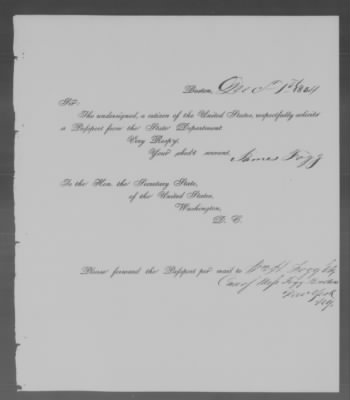 Boston, Dec 1st 1864
Sir:
The undersigned, a citizen of the United States, respectfully solicits
a Passport from the State Department
Very Respy.
Your obdt servant,
James Fogg
To the Hon. the Secretary State,
of the United States,
Washington,
D. C.
Please forward the Passport per mail to Wm H. Fogg
Care of Mess Fogg
New York
NY.